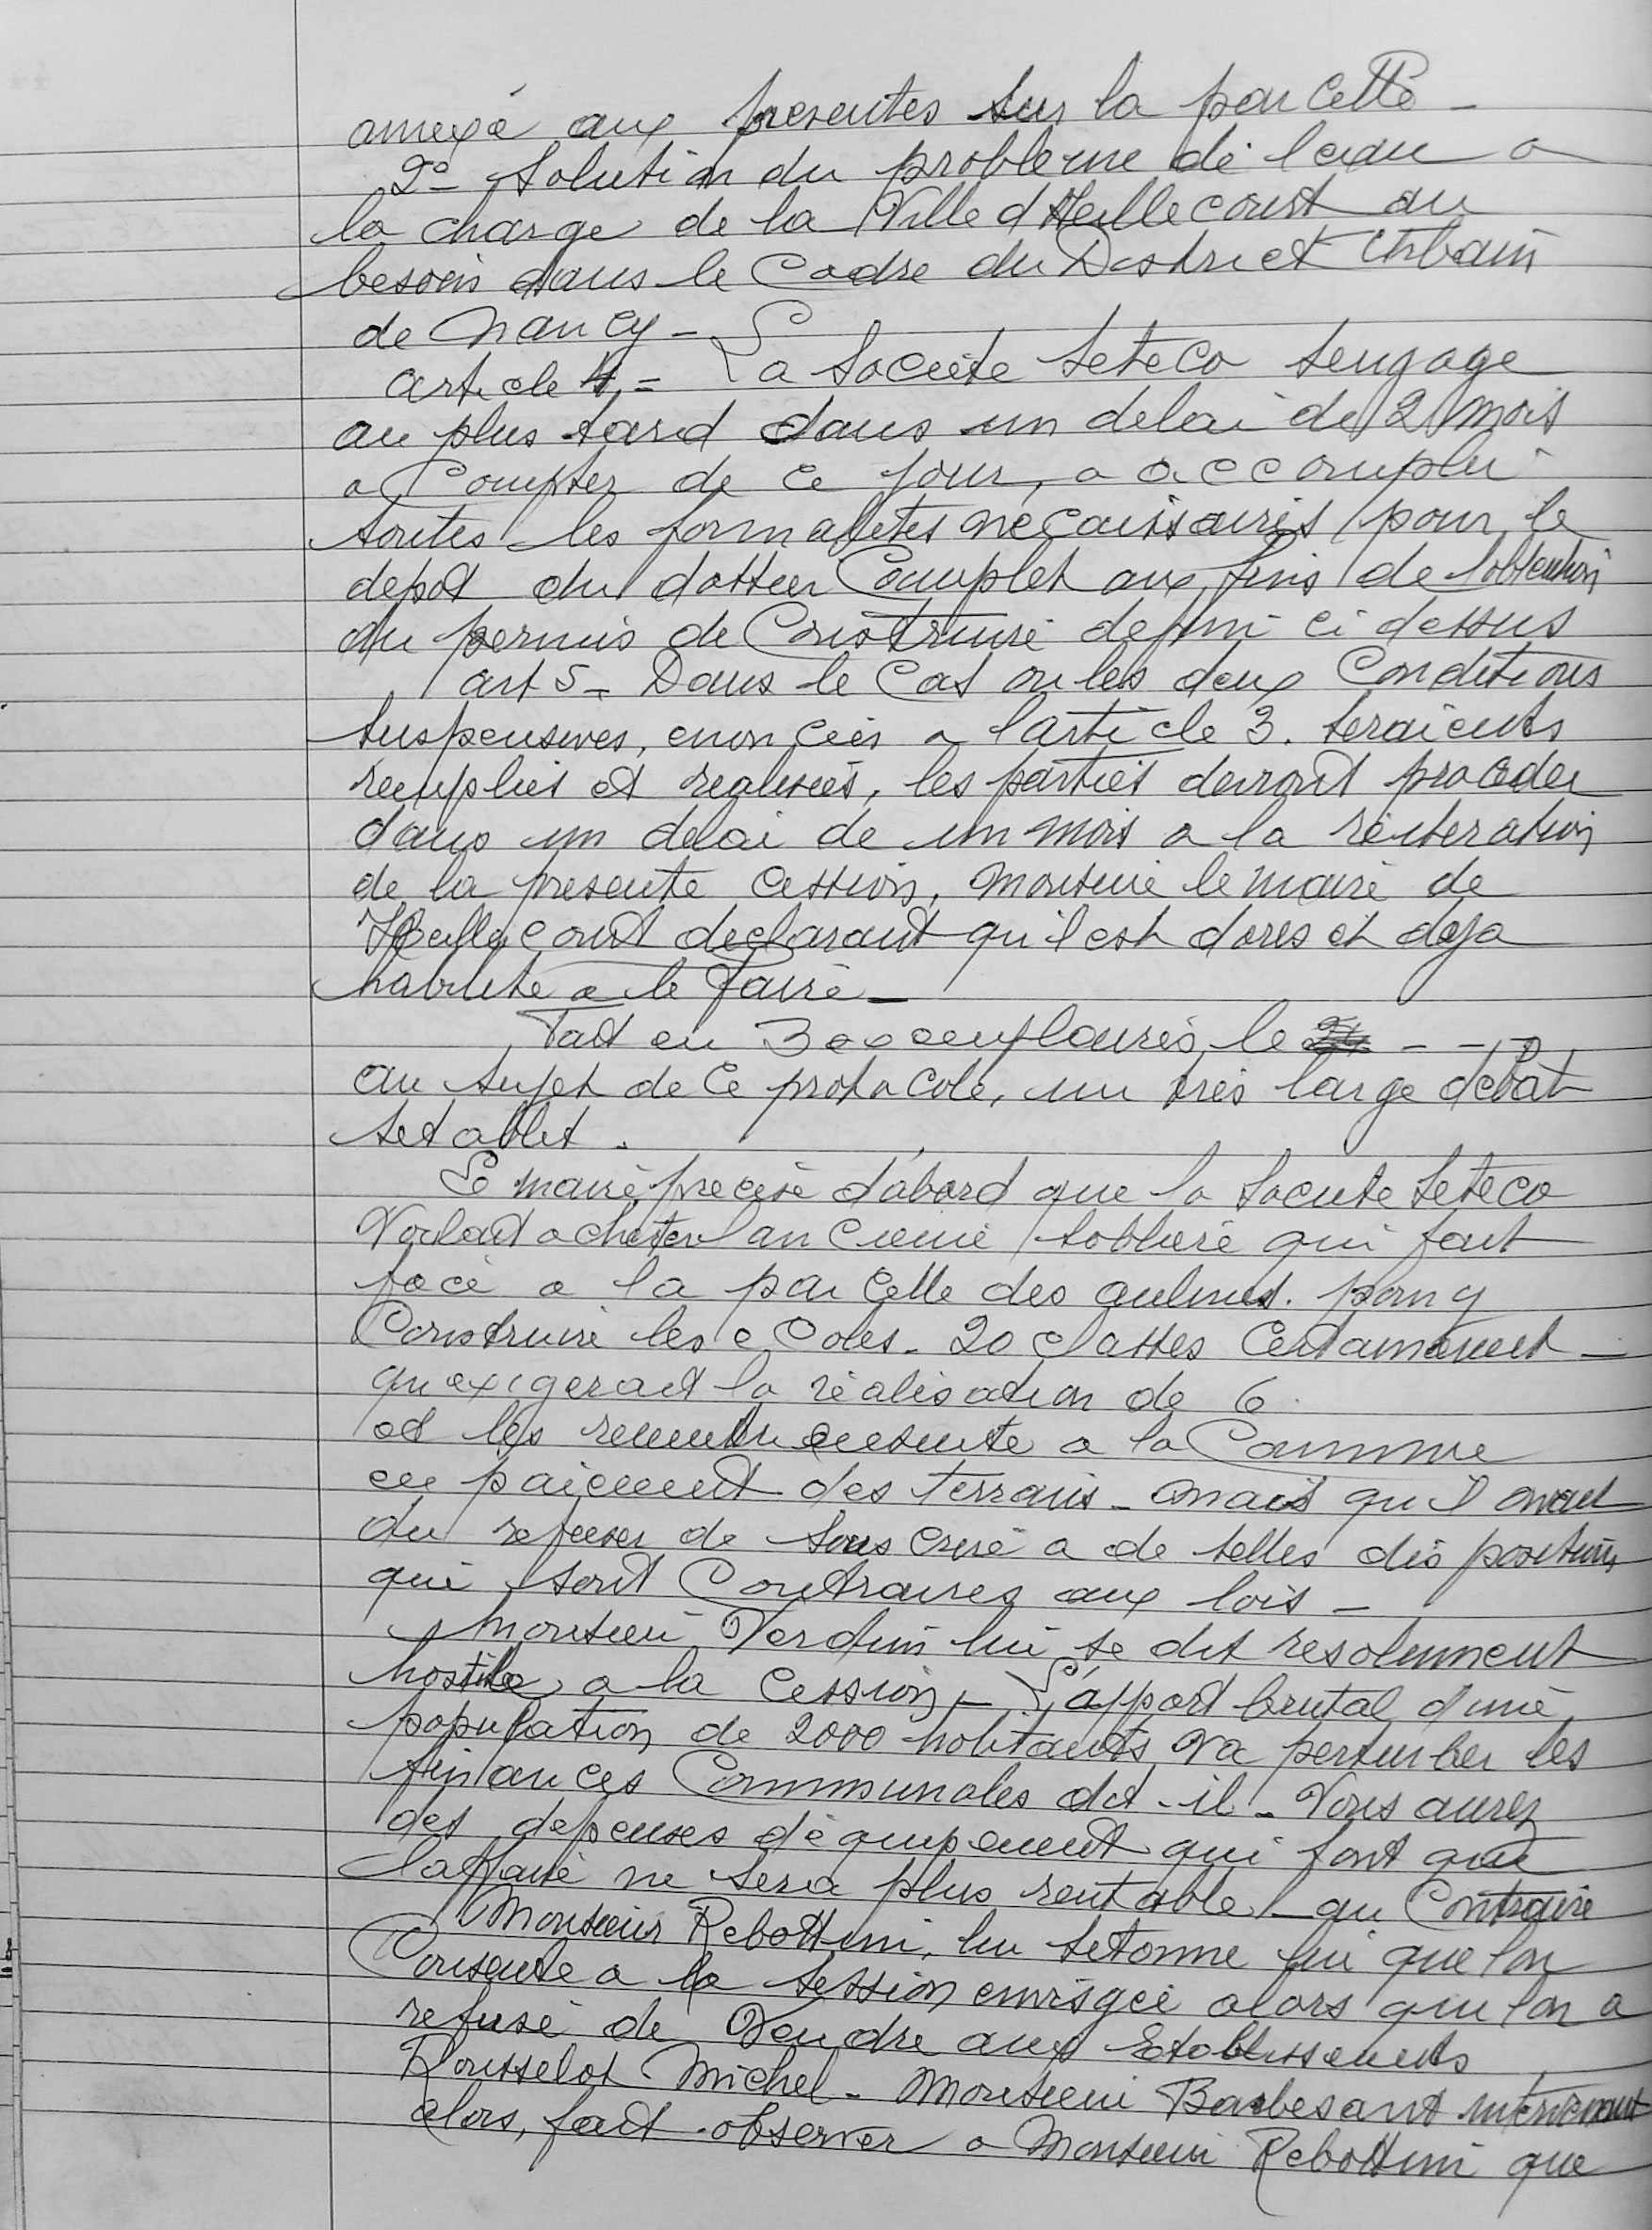 annexé aux presentes sur la parcelle -
2° - Solution du probleme de leau a
la charge de la Ville d'Heillecourt au
besoin dans le Cadre du District Urbain
de Nancy -
article 4 = La Societe Seteco sengage
au plus tard dans un delai de 2 mois
a Compter de ce jour, a accomplir
toutes les formalites necaissaires pour le
depot du dossier Complet aux fins de lobtention
du permis de Construire defini ci dessus
art 5 - Dans le Cas ou les deux Conditions
suspensives, enoncées a larticle 3. seraients
remplies et realisées, les parties devront proceder
dans un delai de un mois a la réiteration
de la presente Cession, Monsieur le maire de
Heillecourt declarant qu'il est dores et deja
habilité a le faire -
Fait en 3 exemplaires, le - - -
au sujet de Ce protocole, un très large debat
setablit.
Le maire precise d'abord que la Societe Seteco
Voulait acheter lancienne sabliere qui fait
face a la parcelle des aulnes. pour y
Construire les ecoles - 20 classes Certainement -
qu exigerait la réalisation de 6
et les remettre ensuite a la Commune
en paiement des terrains - mais qu'il avait
du refuser de souscrire a de telles dispositions
qui sont Contraires aux lois -
Monsieur Verdun lui se dit resolument
hostile a la Cession - L'apport brutal d'une
population de 2000 habitants va perturber les
finances Communales dit-il - Vous aurez
des depenses déquipement qui font que
laffaire ne sera plus rentable - au Contraire
Monsieur Rebottini, lui setonne lui que lon
Consente a la session envisgée alors que lon a
refusé de Vendre aux Etablissements
Rousselot Michel - Monsieur Barbesant intervenant
alors, fait observer a Monsieur Rebottini que